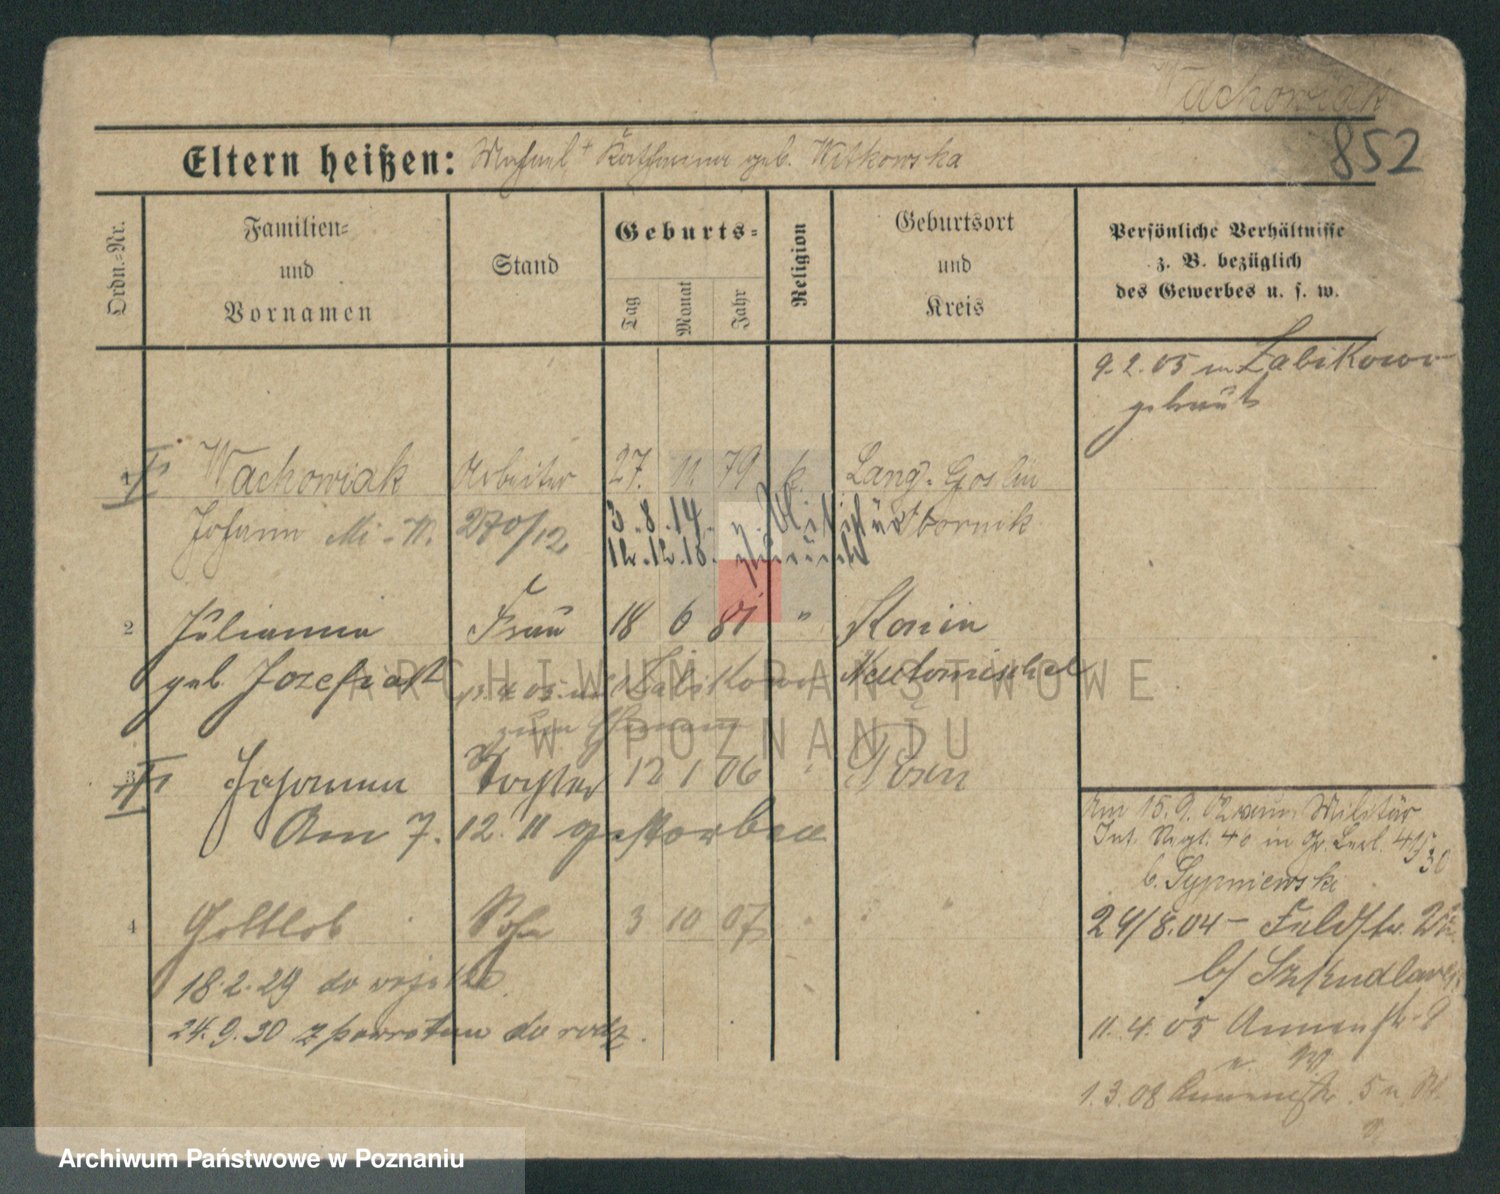 Wachowiak
852
Eltern heißen: Michael + Katharina geb. Witkowska
Ordn.=Nr.
Familien=
und
Vornamen
Stand
Geburts=
Tag
Monat
Jahr
Religion
Geburtsort
und
Kreis
Persönliche Verhältnisse
z. B. bezüglich
des Gewerbes u. s. w.
9. 2. 05 in Zabikowo
getraut
1 Wachowiak Arbeiter 27. 11. 79 k. Lang-Goslin
Johann 270/12 3. 8. 14. z. Militär Obornik
12. 12. 18. zurück
2 Julianna Frau 18 6 81 " Konin
geb. Jozefiak 11. 4. 05 Zabikowo Neutomischel
zum Ehemann
3 Johanna Tochter 12 1 06 " Posen
Am 7. 12. 11 gestorben
4 Gottlob Sohn 3 10 07 "
18. 2. 29 do wojska
24. 9. 30 z powrotem do rodz.
Am 15. 9. 02 vom Militär
Inf. Regt. 46 in
b. Sypniewski
24/8. 04 – Feldstr.
b/ Szkudlarek
11. 4. 05 Annenstr. 9
1. 3. 08 Annenstr. 5
ARCHIWUM PAŃSTWOWE
W POZNANIU
Archiwum Państwowe w Poznaniu